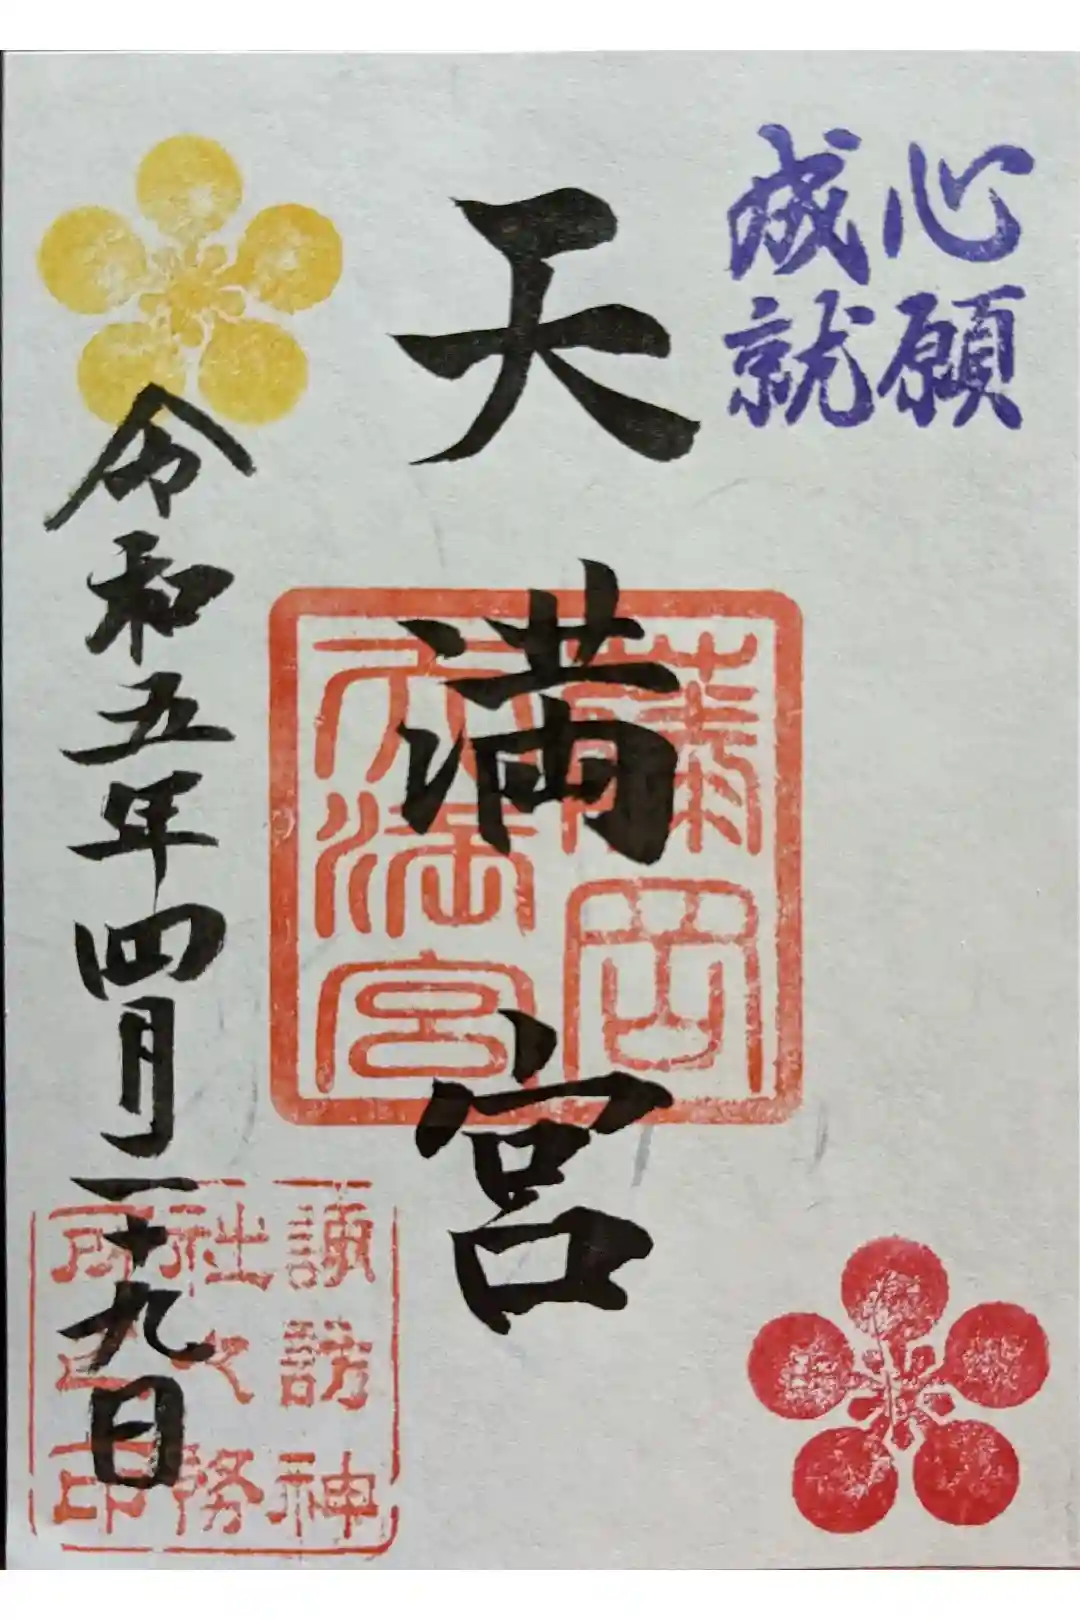 心願
成就
天満宮
岡
天満宮
令和五年四月二十九日
諏訪神
社々務
所之印